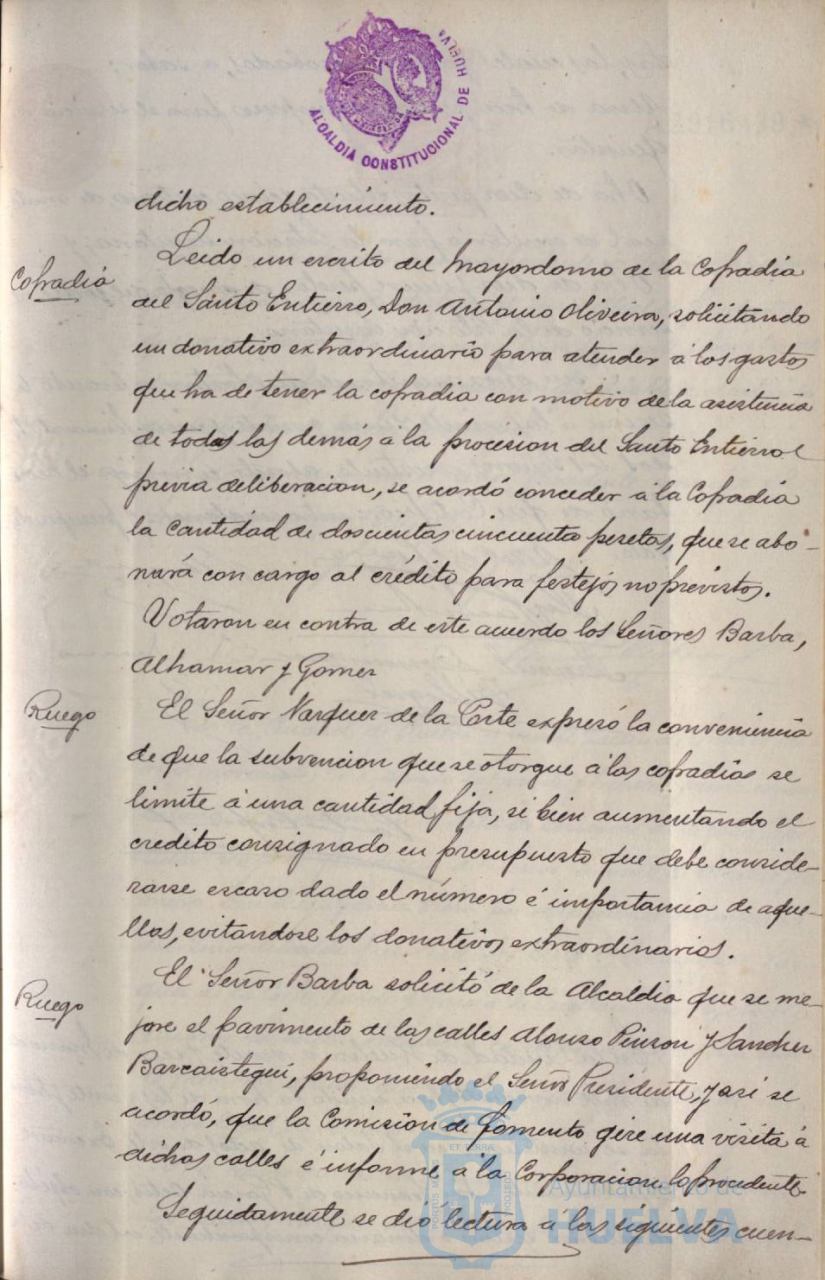 ALCALDIA CONSTITUCIONAL DE HUELVA
dicho establecimiento.
Cofradia
Leido un escrito del Mayordomo de la Cofradia
del Santo Entierro, Don Antonio Oliveira, solicitando
un donativo extraordinario para atender á los gastos
que ha de tener la cofradia con motivo de la asistencia
de todas las demás á la procesion del Santo Entierro é
previa deliberacion, se acordó conceder á la Cofradia
la cantidad de doscientas cincuenta pesetas, que se abo-
nará con cargo al crédito para festejos no previstos.
Votaron en contra de este acuerdo los Señores Barba,
Alhamar y Gomez
Ruego
El Señor Vazquez de la Corte expresó la conveniencia
de que la subvencion que se otorgue á las cofradias se
limite á una cantidad fija, si bien aumentando el
credito consignado en presupuesto que debe conside-
rarse escaso dado el número é importancia de aque-
llas, evitandose los donativos extraordinarios.
Ruego
El Señor Barba solicitó de la Alcaldia que se me-
jore el pavimento de las calles Alonso Pinzon y Sanchez
Barcaiztegui, proponiendo el Señor Presidente, y asi se
acordó, que la Comision de Fomento gire una visita á
dichas calles é informe á la Corporacion lo procedente.
Seguidamente se dio lectura á las siguientes cuen-
Ayuntamiento de
HUELVA